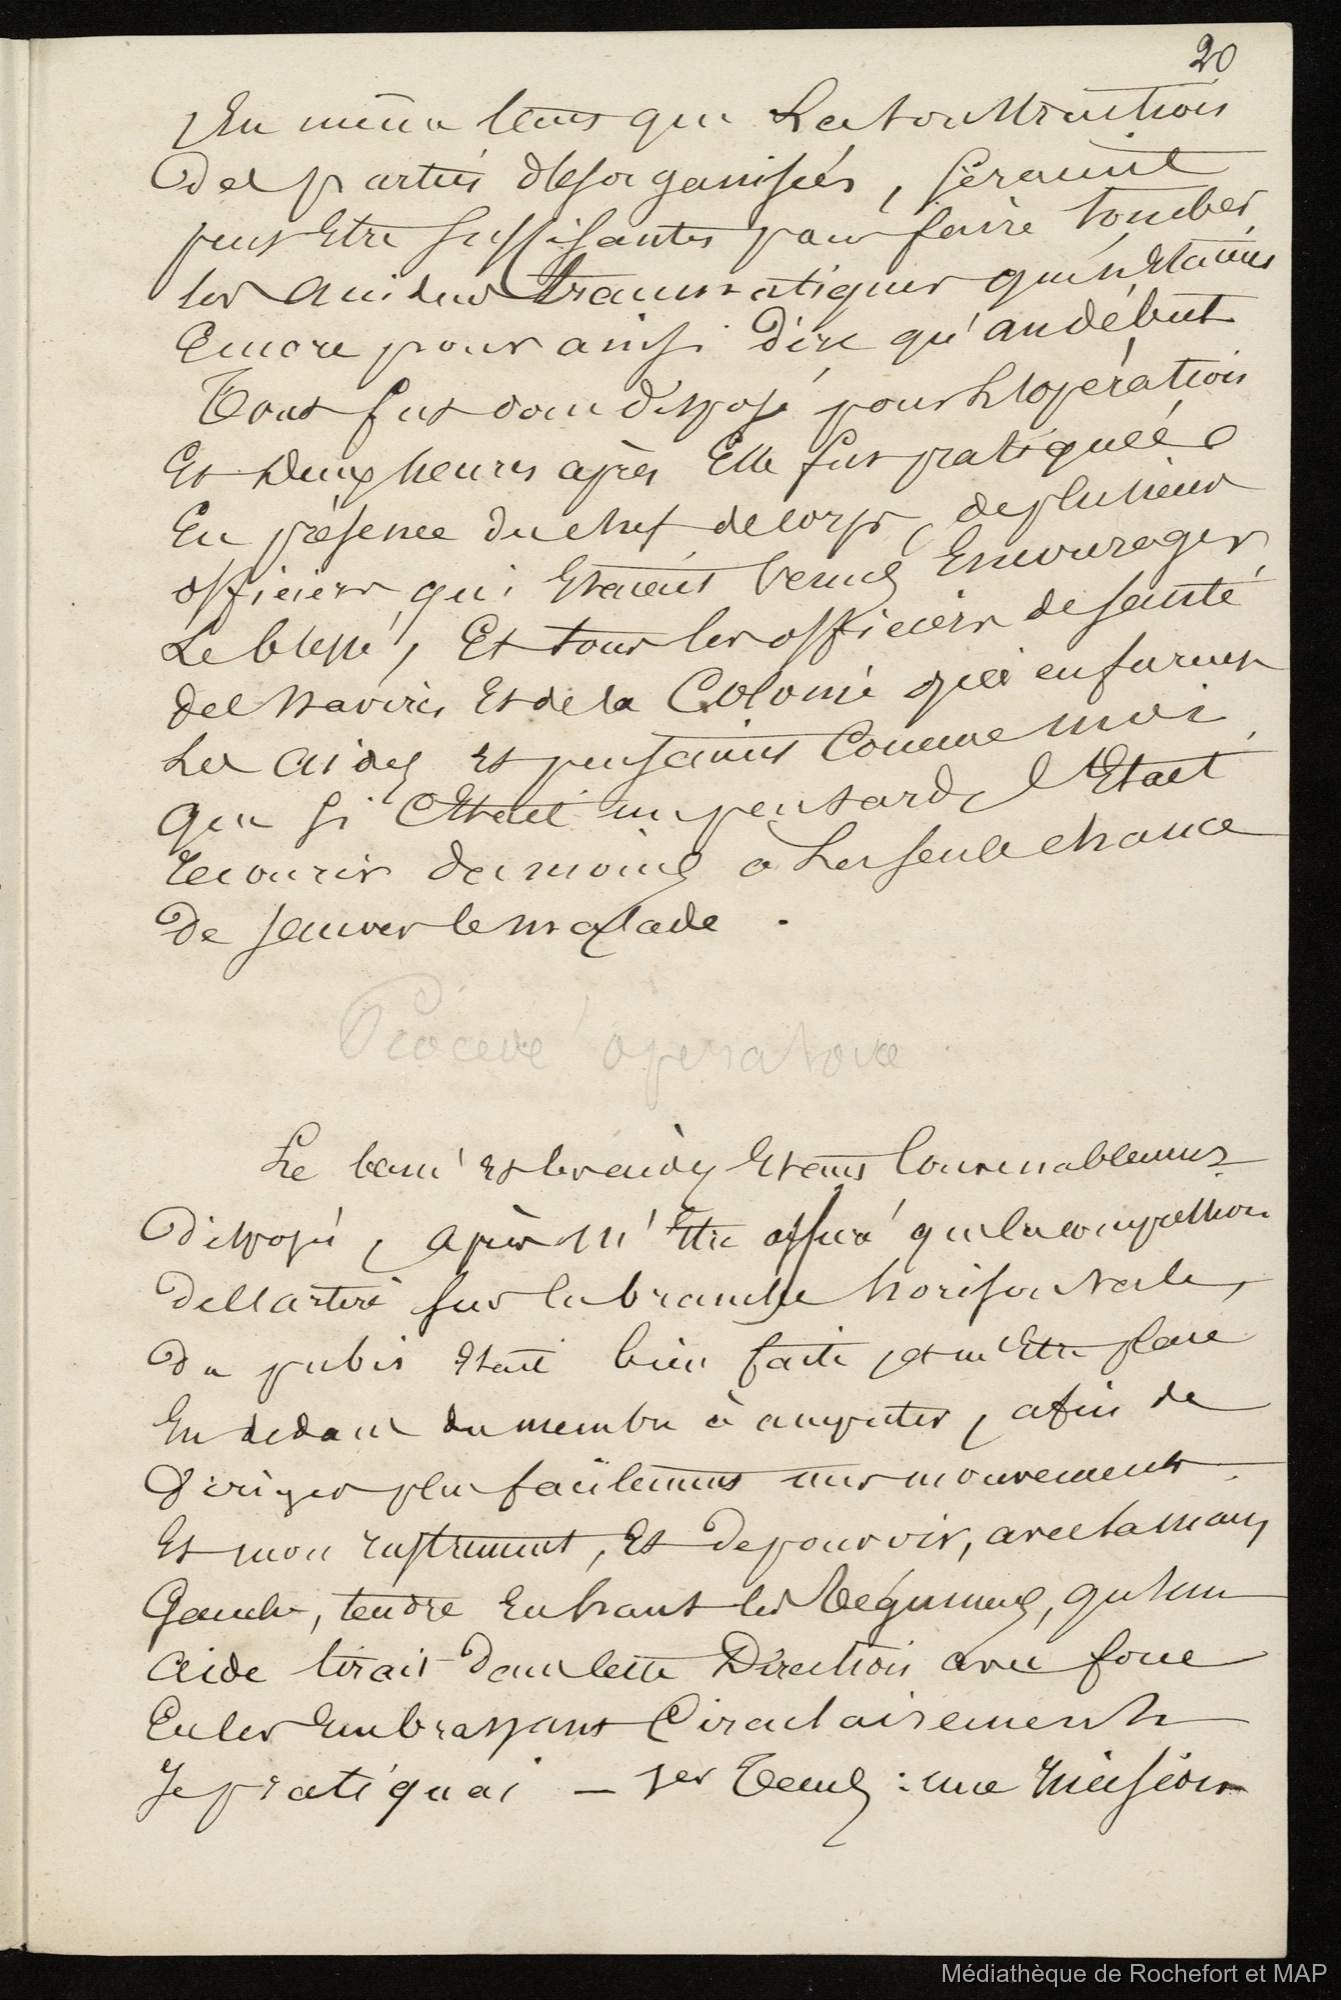 20
En même tems que la soustraction
des parties désorganisées, seraient
peut être suffisantes pour faire tomber
les accidens traumatiques qui n'étaient
encore pour ainsi dire qu'au début
Tout fut donc disposé pour l'opération
Et deux heures après Elle fut pratiquée
En présence du chef de corps, de plusieurs
officiers qui Etaient venus Encourager
Le blessé, Et tous les officiers de santé
des navires Et de la Colonie qui en furent
les aides et pensaient comme moi
que si C'était un peu tard, C'Etait
recourir du moins à la seule chance
De sauver le malade.
Procédé opératoire.
Le banc et les aides Etant Convenablement
Disposés, après m'être assuré que la compression
De l'artère sur la branche horisontale,
Du pubis était bien faite, et m'être placé
En dedans du membre à amputer, afin de
Diriger plus facilement mes mouvements
Et mon instrument, Et de pouvoir, avec la main
Gauche, tendre En haut les tégumens, qu'un
aide tirait dans cette Direction avec force
En les Embrassant Circulairement
Je pratiquai — 1er Tems : une incision
Médiathèque de Rochefort et MAP